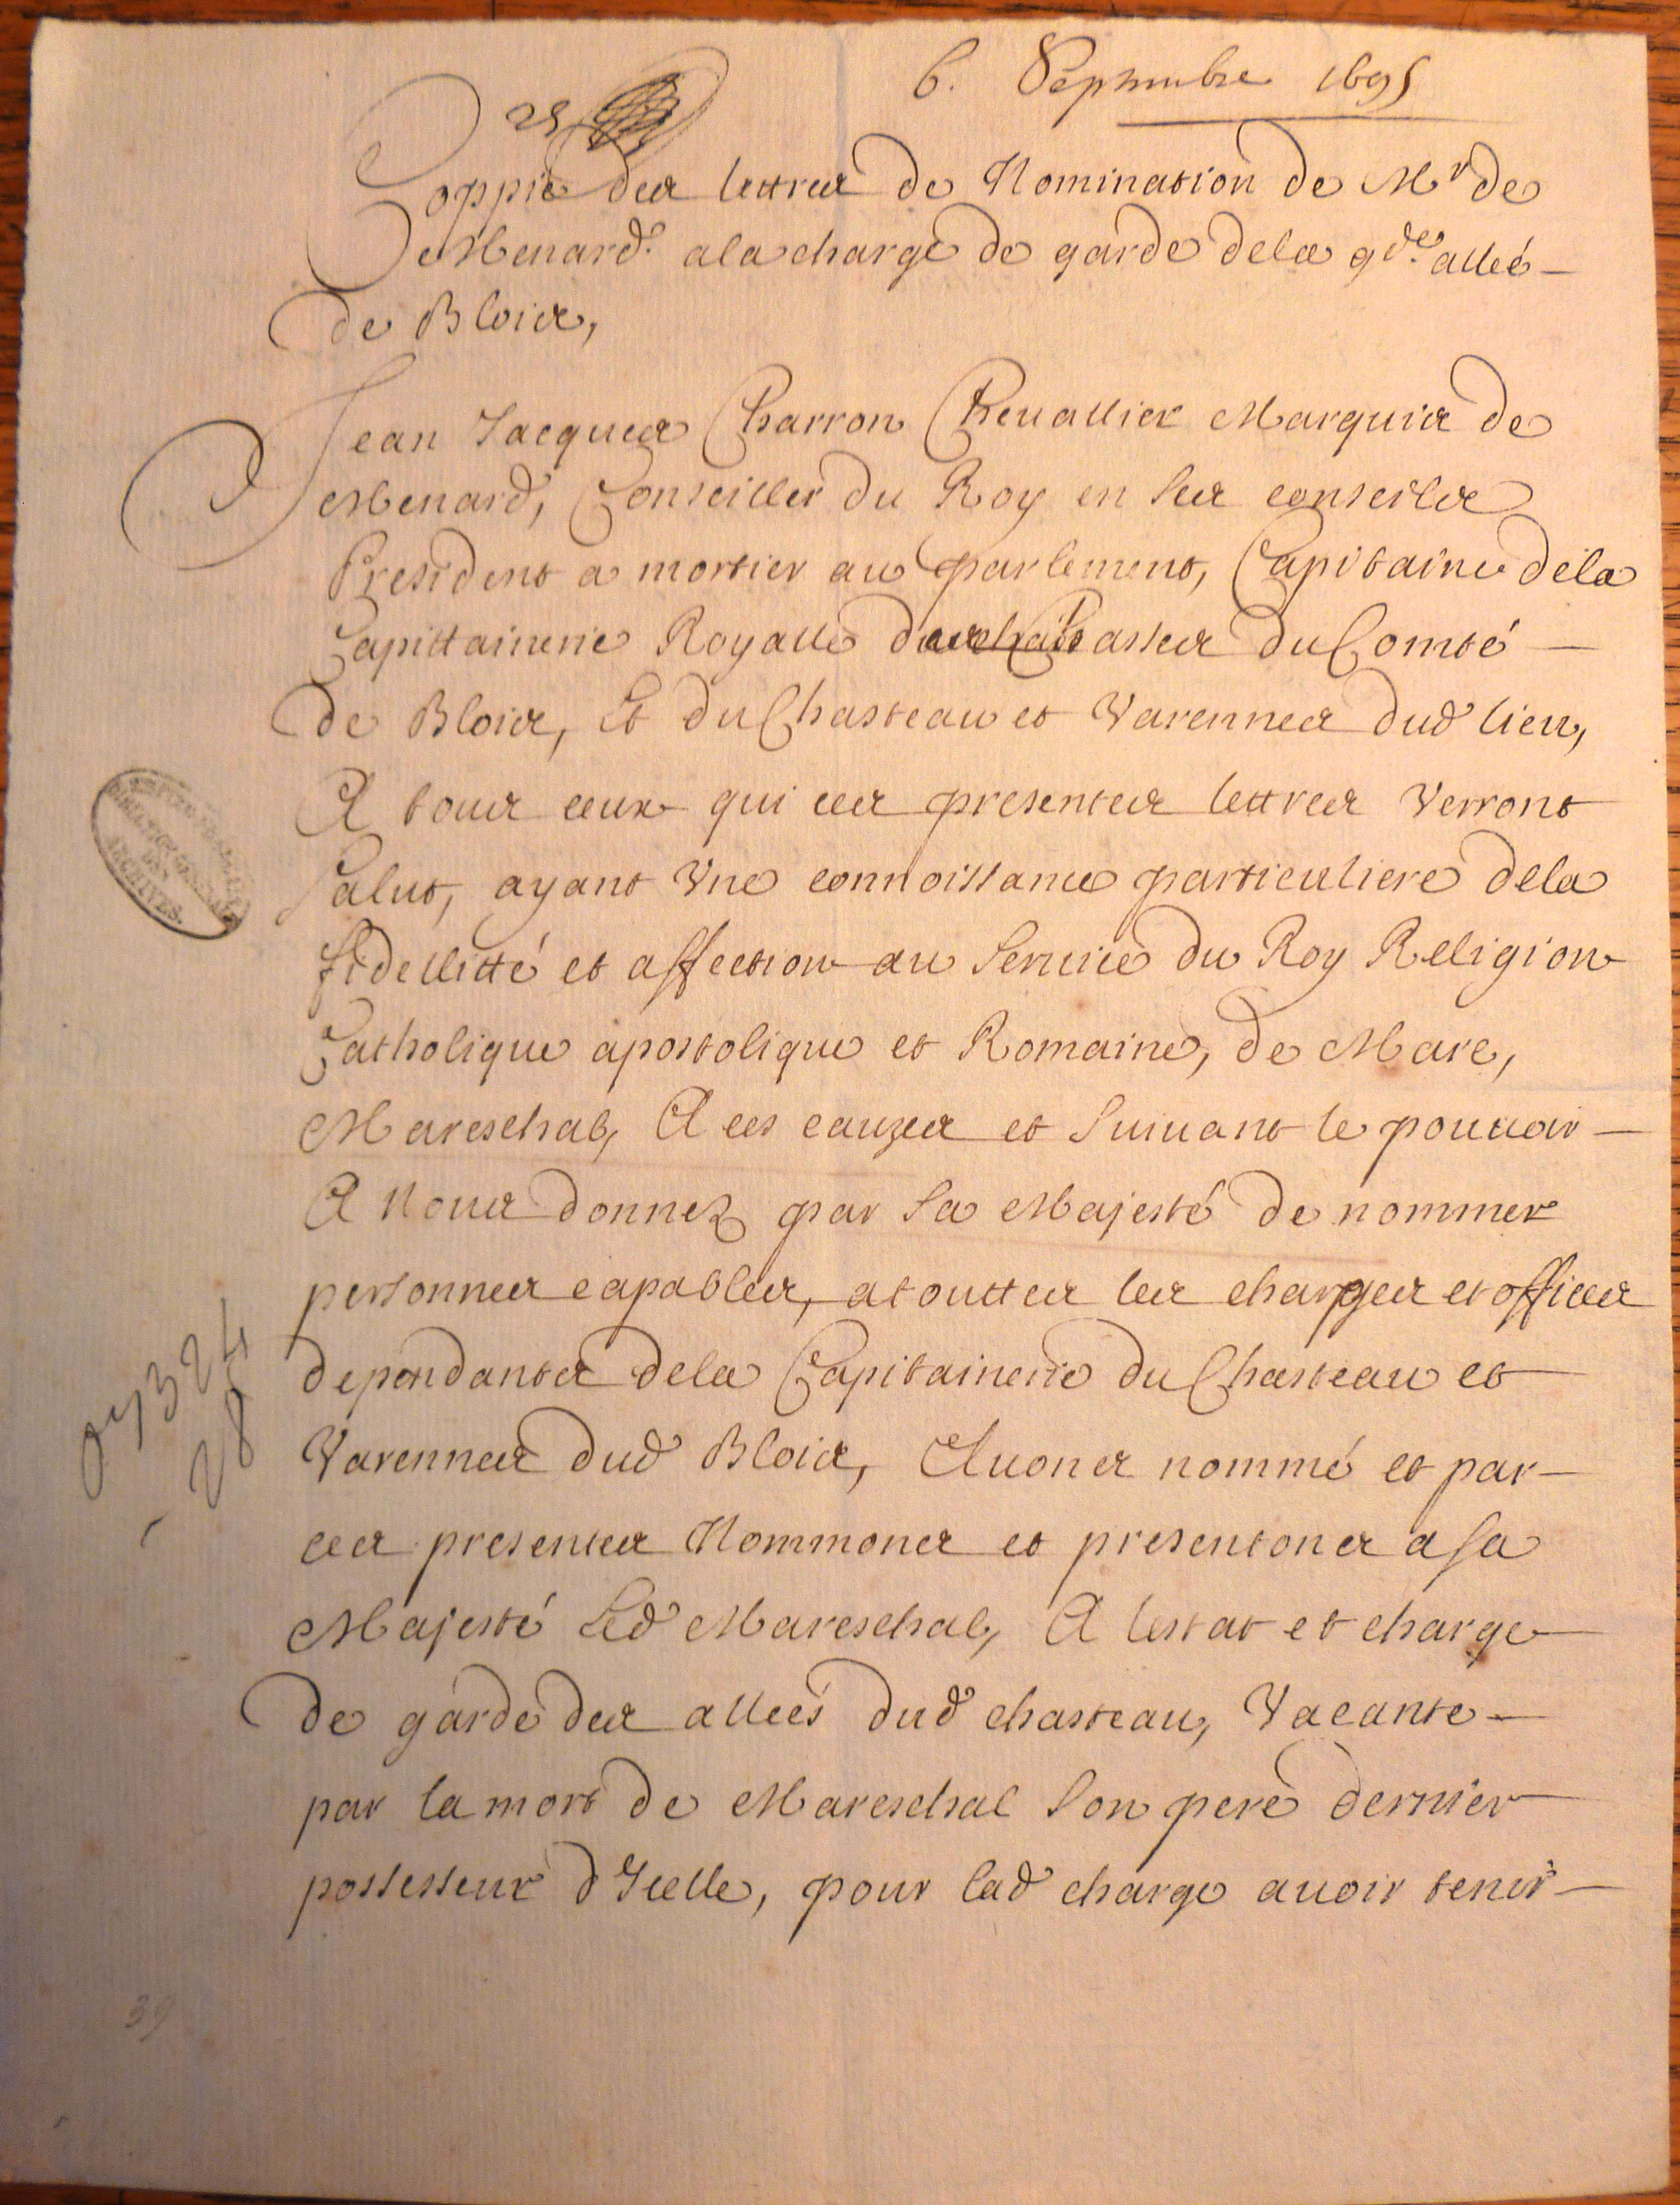 6. Septembre 1695
25
Coppie des lettres de Nomination de Mr de
Menard. a la charge de garde de la gde. allée
de Blois,
Jean Jacques Charron Cheuallier Marquis de
Menard, Conseiller du Roy en ses conseils
President a mortier au parlement, Capitaine de la
Capittainerie Royalle des Chasses du Comté
de Blois, Et du Chasteau et Varennes dud lieu,
A tous ceux qui ces presentes lettres Verront
Salut, ayant Vne connoissance particuliere de la
fidellitté et affection au Seruice du Roy Religion
Catholique apostolique et Romaine, de Marc,
Mareschal, A ces cauzes et Suiuant le pouuoir
A Nous donnez par Sa Majesté de nommer
personnes capables, a touttes les charges et offices
dependantes de la Capitainerie du Chasteau et
Varennes dud Blois, Auons nommé et par
ces presentes Nommons et presentons a sa
Majesté Led Mareschal, A lestat et charge
de garde des allées dud chasteau, Vacante
par la mort de Mareschal Son pere dernier
possesseur d'Icelle, pour lad charge auoir tenir
DES
ARCHIVES.
324
28
39